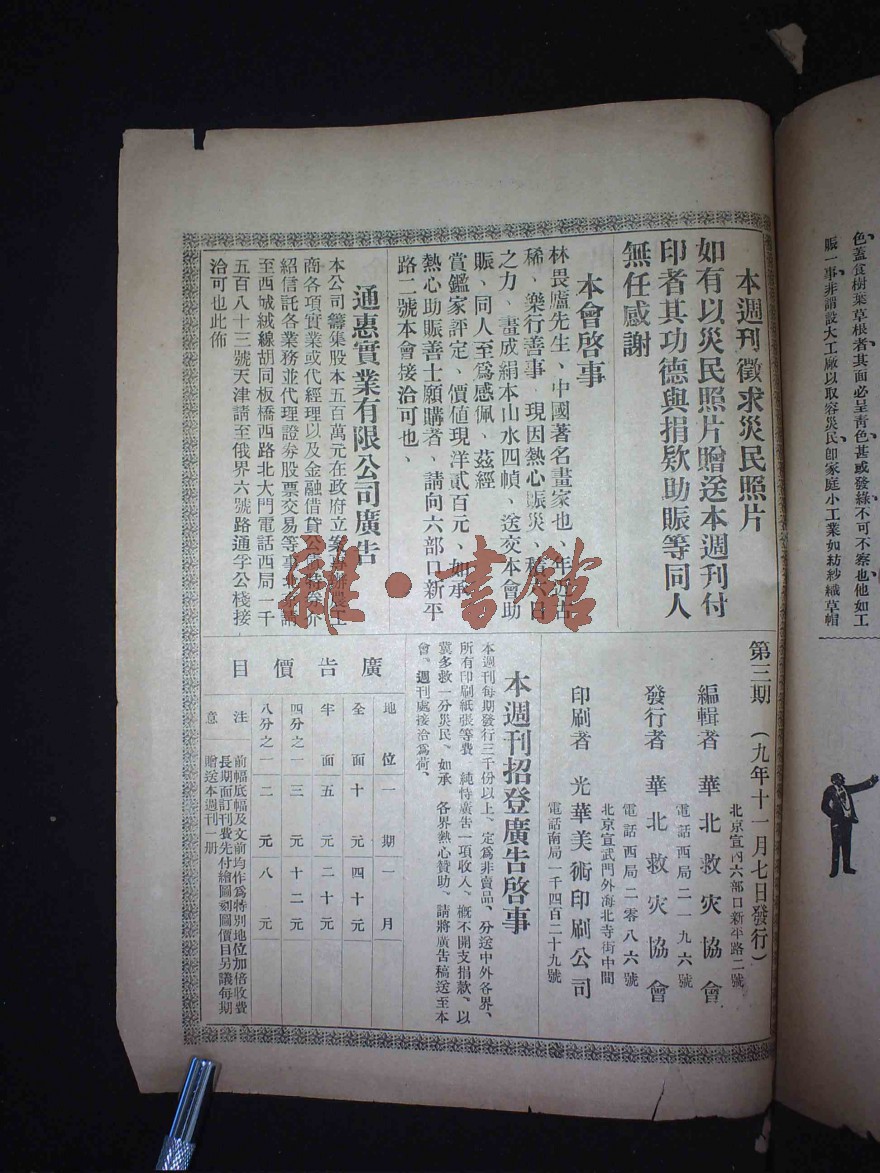 色、蓋食樹葉草根者、其面必呈青色、甚或發綠、不可不察也、他如工
賑一事、非謂設大工廠以取容災民、卽家庭小工業如紡紗織草帽
本週刋徵求災民照片
如有以災民照片贈送本週刋付
印者其功德與捐欵助賑等同人
無任感謝
本會啓事
林畏廬先生、中國著名畫家也、年近古
稀、樂行善事、現因熱心賑災、
之力、畫成絹本山水四幀、送交本會助
賑、同人至爲感佩、茲經
賞鑑家評定、價値現洋貳百元、如承
熱心助賑善士願購者、請向六部口新平
路二號本會接洽可也、
通惠實業有限公司廣告
本公司籌集股本五百萬元在政府立案專辦農工
商各項實業或代經理以及金融借貸公債特券介
紹信託各業務並代理證券股票交易等事北京請
至西城絨線胡同板橋西路北大門電話西局一千
五百八十三號天津請至俄界六號路通孚公棧接
洽可也此佈
第三期 (九年十一月七日發行)
北京宣內六部口新平路二號
編輯者 華北救灾協會
電話西局二一九六號
發行者 華北救灾協會
電話西局二零八六號
北京宣武門外海北寺街中間
印刷者 光華美術印刷公司
電話南局一千四百二十九號
本週刋招登廣告啓事
本週刋每期發行三千份以上、定爲非賣品、分送中外各界、
所有印刷紙張等費、純恃廣告一項收入、槪不開支捐款、以
冀多救一分災民、如承 各界熱心贊助、請將廣告稿送至本
會、週刋處接洽爲荷、
廣告價目
地位 一期 一月
全面 十元 四十元
半面 五元 二十元
四分之一 三元 十二元
八分之一 二元 八元
注意
前幅底幅及文前均作爲特別地位加倍收費
長期面訂刊費先付繪圖刻圖價目另議每期
贈送本週刋一册
雜·書館